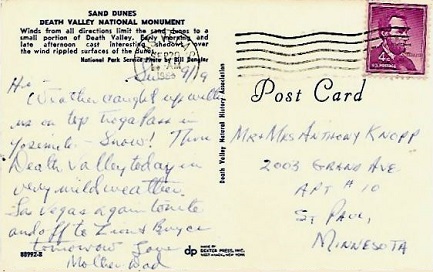 SAND DUNES
DEATH VALLEY NATIONAL MONUMENT
Winds from all directions limit the sand dunes to a
small portion of Death Valley. Early morning and
late afternoon cast interesting shadows over
the wind rippled surfaces of the dunes.
National Park Service Photo by Bill
Sat 9/19
Hi -
Weather caught up with
us on top Tioga Pass in
Yosemite - Snow! Thru
Death Valley today in
very mild weather.
Las Vegas again tonite
and off to Zion & Bryce
tomorrow Love
Mother Dad
88992-B
Death Valley Natural History Association
dp
MADE BY
DEXTER PRESS, INC.
WEST NYACK, NEW YORK
4¢
U.S. POSTAGE
Post Card
Mr & Mrs Anthony Knopp
2003 Grand Ave
Apt #10
St Paul,
Minnesota